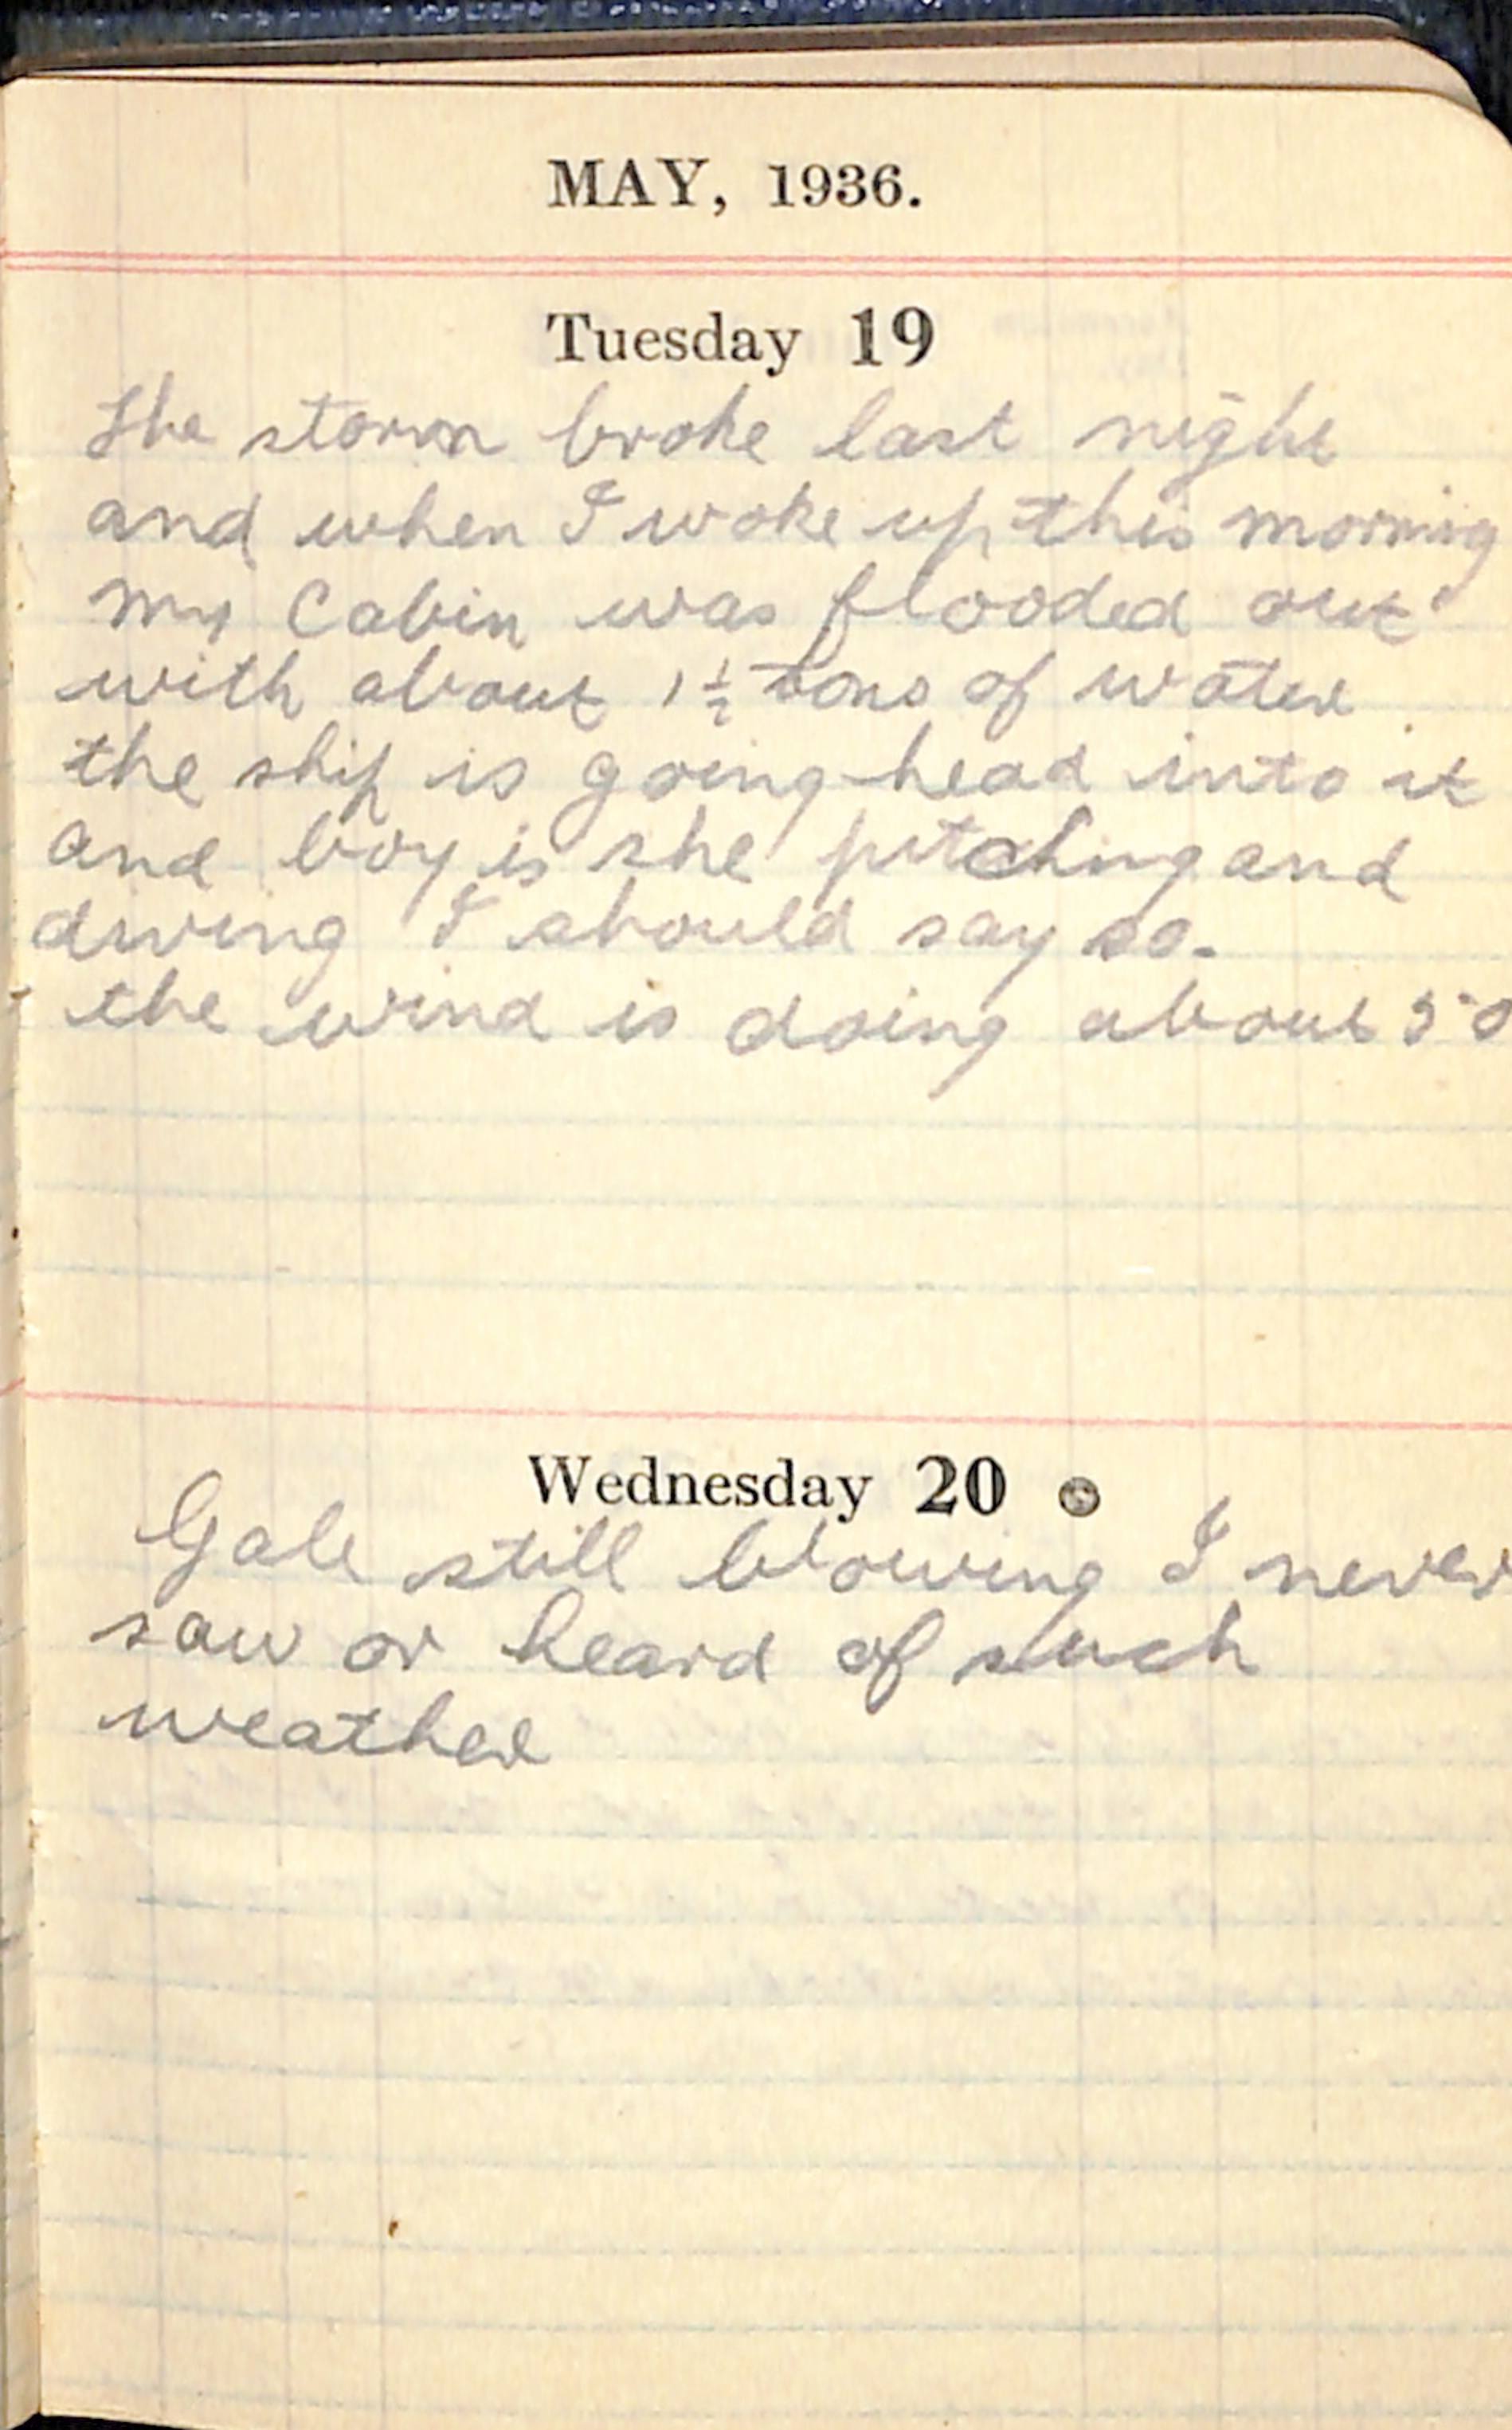 MAY, 1936.
Tuesday 19
The storm broke last night
and when I woke up this morning
my Cabin was flooded out
with about 1½ tons of water
the ship is going head into it
and boy is she pitching and
diving I should say so.
the wind is doing about 50
Wednesday 20
Gale still blowing I never
saw or heard of such
weather